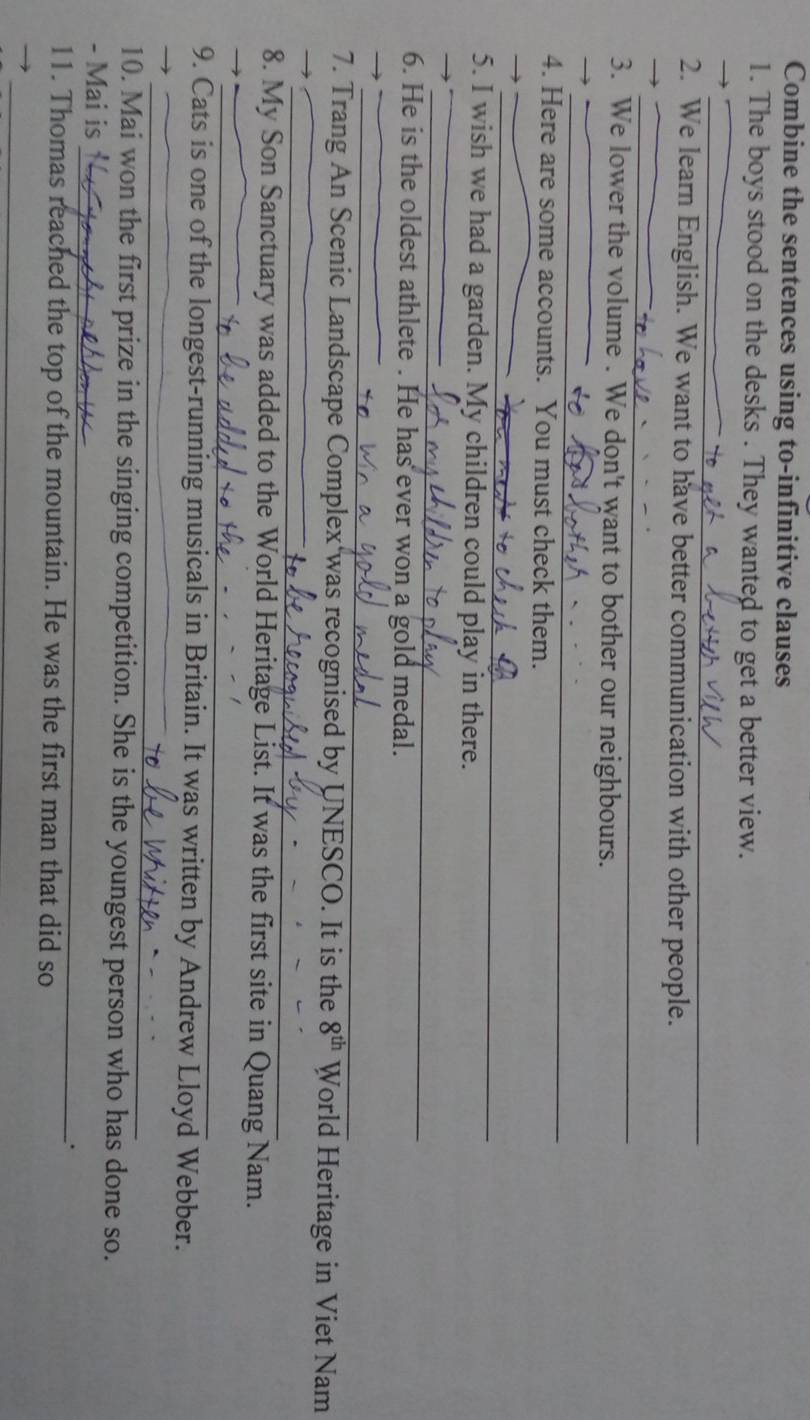 Combine the sentences using to-infinitive clauses
1. The boys stood on the desks . They wanted to get a better view.
→ to get a better view
2. We learn English. We want to have better communication with other people.
→ to have . . - .
3. We lower the volume . We don't want to bother our neighbours.
→ to bother . . . .
4. Here are some accounts. You must check them.
→ to check
5. I wish we had a garden. My children could play in there.
→ for my children to play
6. He is the oldest athlete . He has ever won a gold medal.
→ to win a gold medal
7. Trang An Scenic Landscape Complex was recognised by UNESCO. It is the 8th World Heritage in Viet Nam
→ to be recognised by - - . - - .
8. My Son Sanctuary was added to the World Heritage List. It was the first site in Quang Nam.
→ to be added to the - . - - .
9. Cats is one of the longest-running musicals in Britain. It was written by Andrew Lloyd Webber.
→ to be written - - . . .
10. Mai won the first prize in the singing competition. She is the youngest person who has done so.
- Mai is the youngest .
11. Thomas reached the top of the mountain. He was the first man that did so
→